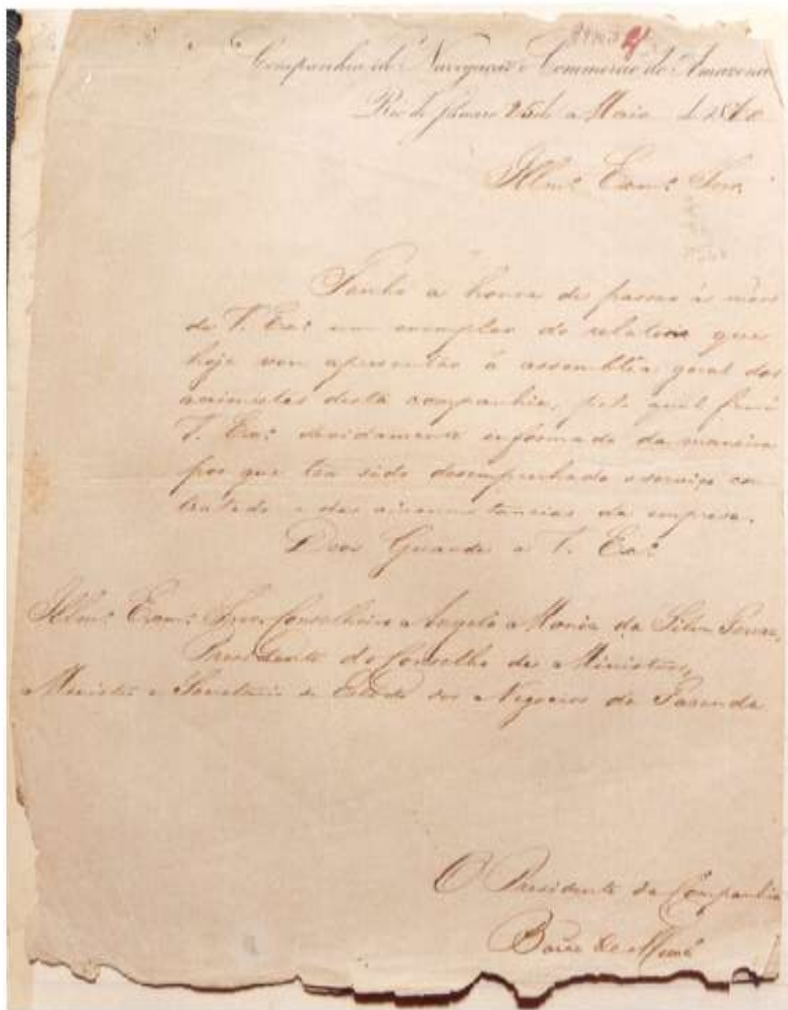 Companhia de Navegação e Commercio do Amazonas
Rio de Janeiro 25 de Maio de 18
Illmo. Exmo. Snr.
Tenho a honra de passar ás mãos
de V. Exa. um exemplar do relatorio que
hoje vou apresentar á assembléa geral dos
accionistas desta companhia, pelo qual ficará
V. Exa. devidamente informado da maneira
por que tem sido desempenhado o serviço con
tratado e das circumstancias da empresa.
Deos Guarde a V. Exa.
Illmo. Exmo. Snr. Conselheiro Angelo Moniz da Silva Ferraz,
Presidente do Conselho de Ministros,
Ministro e Secretario de Estado dos Negocios da Fazenda
O Presidente da Companhia
Barão de Mauá